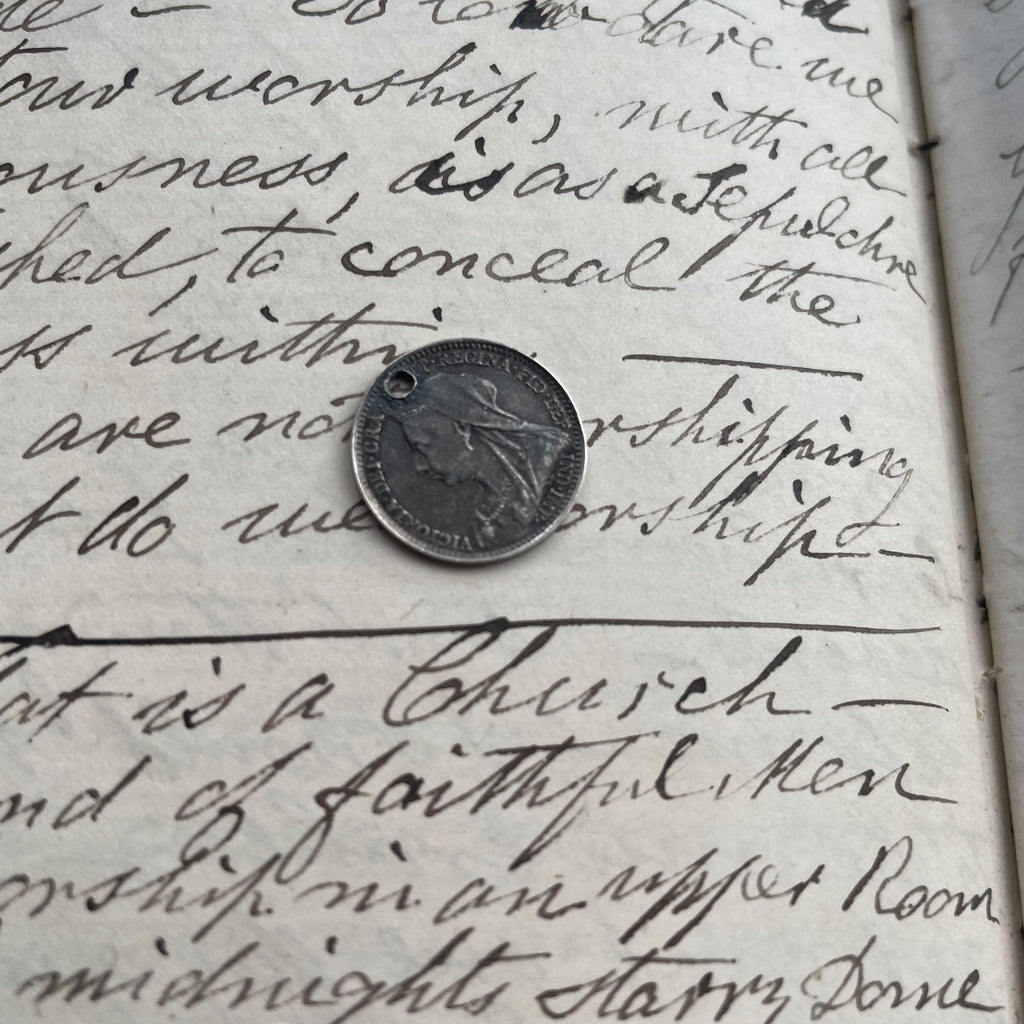 dare me
our worship, with all
ousness, is as a Sepulchre
hed, to conceal the
ss within
are not worshipping
t do we worship -
at is a Church -
nd of faithful Men
orship in an upper Room
midnights starry Dome
VICTORIA DEI GRA REGINA FID DEF IND IMP